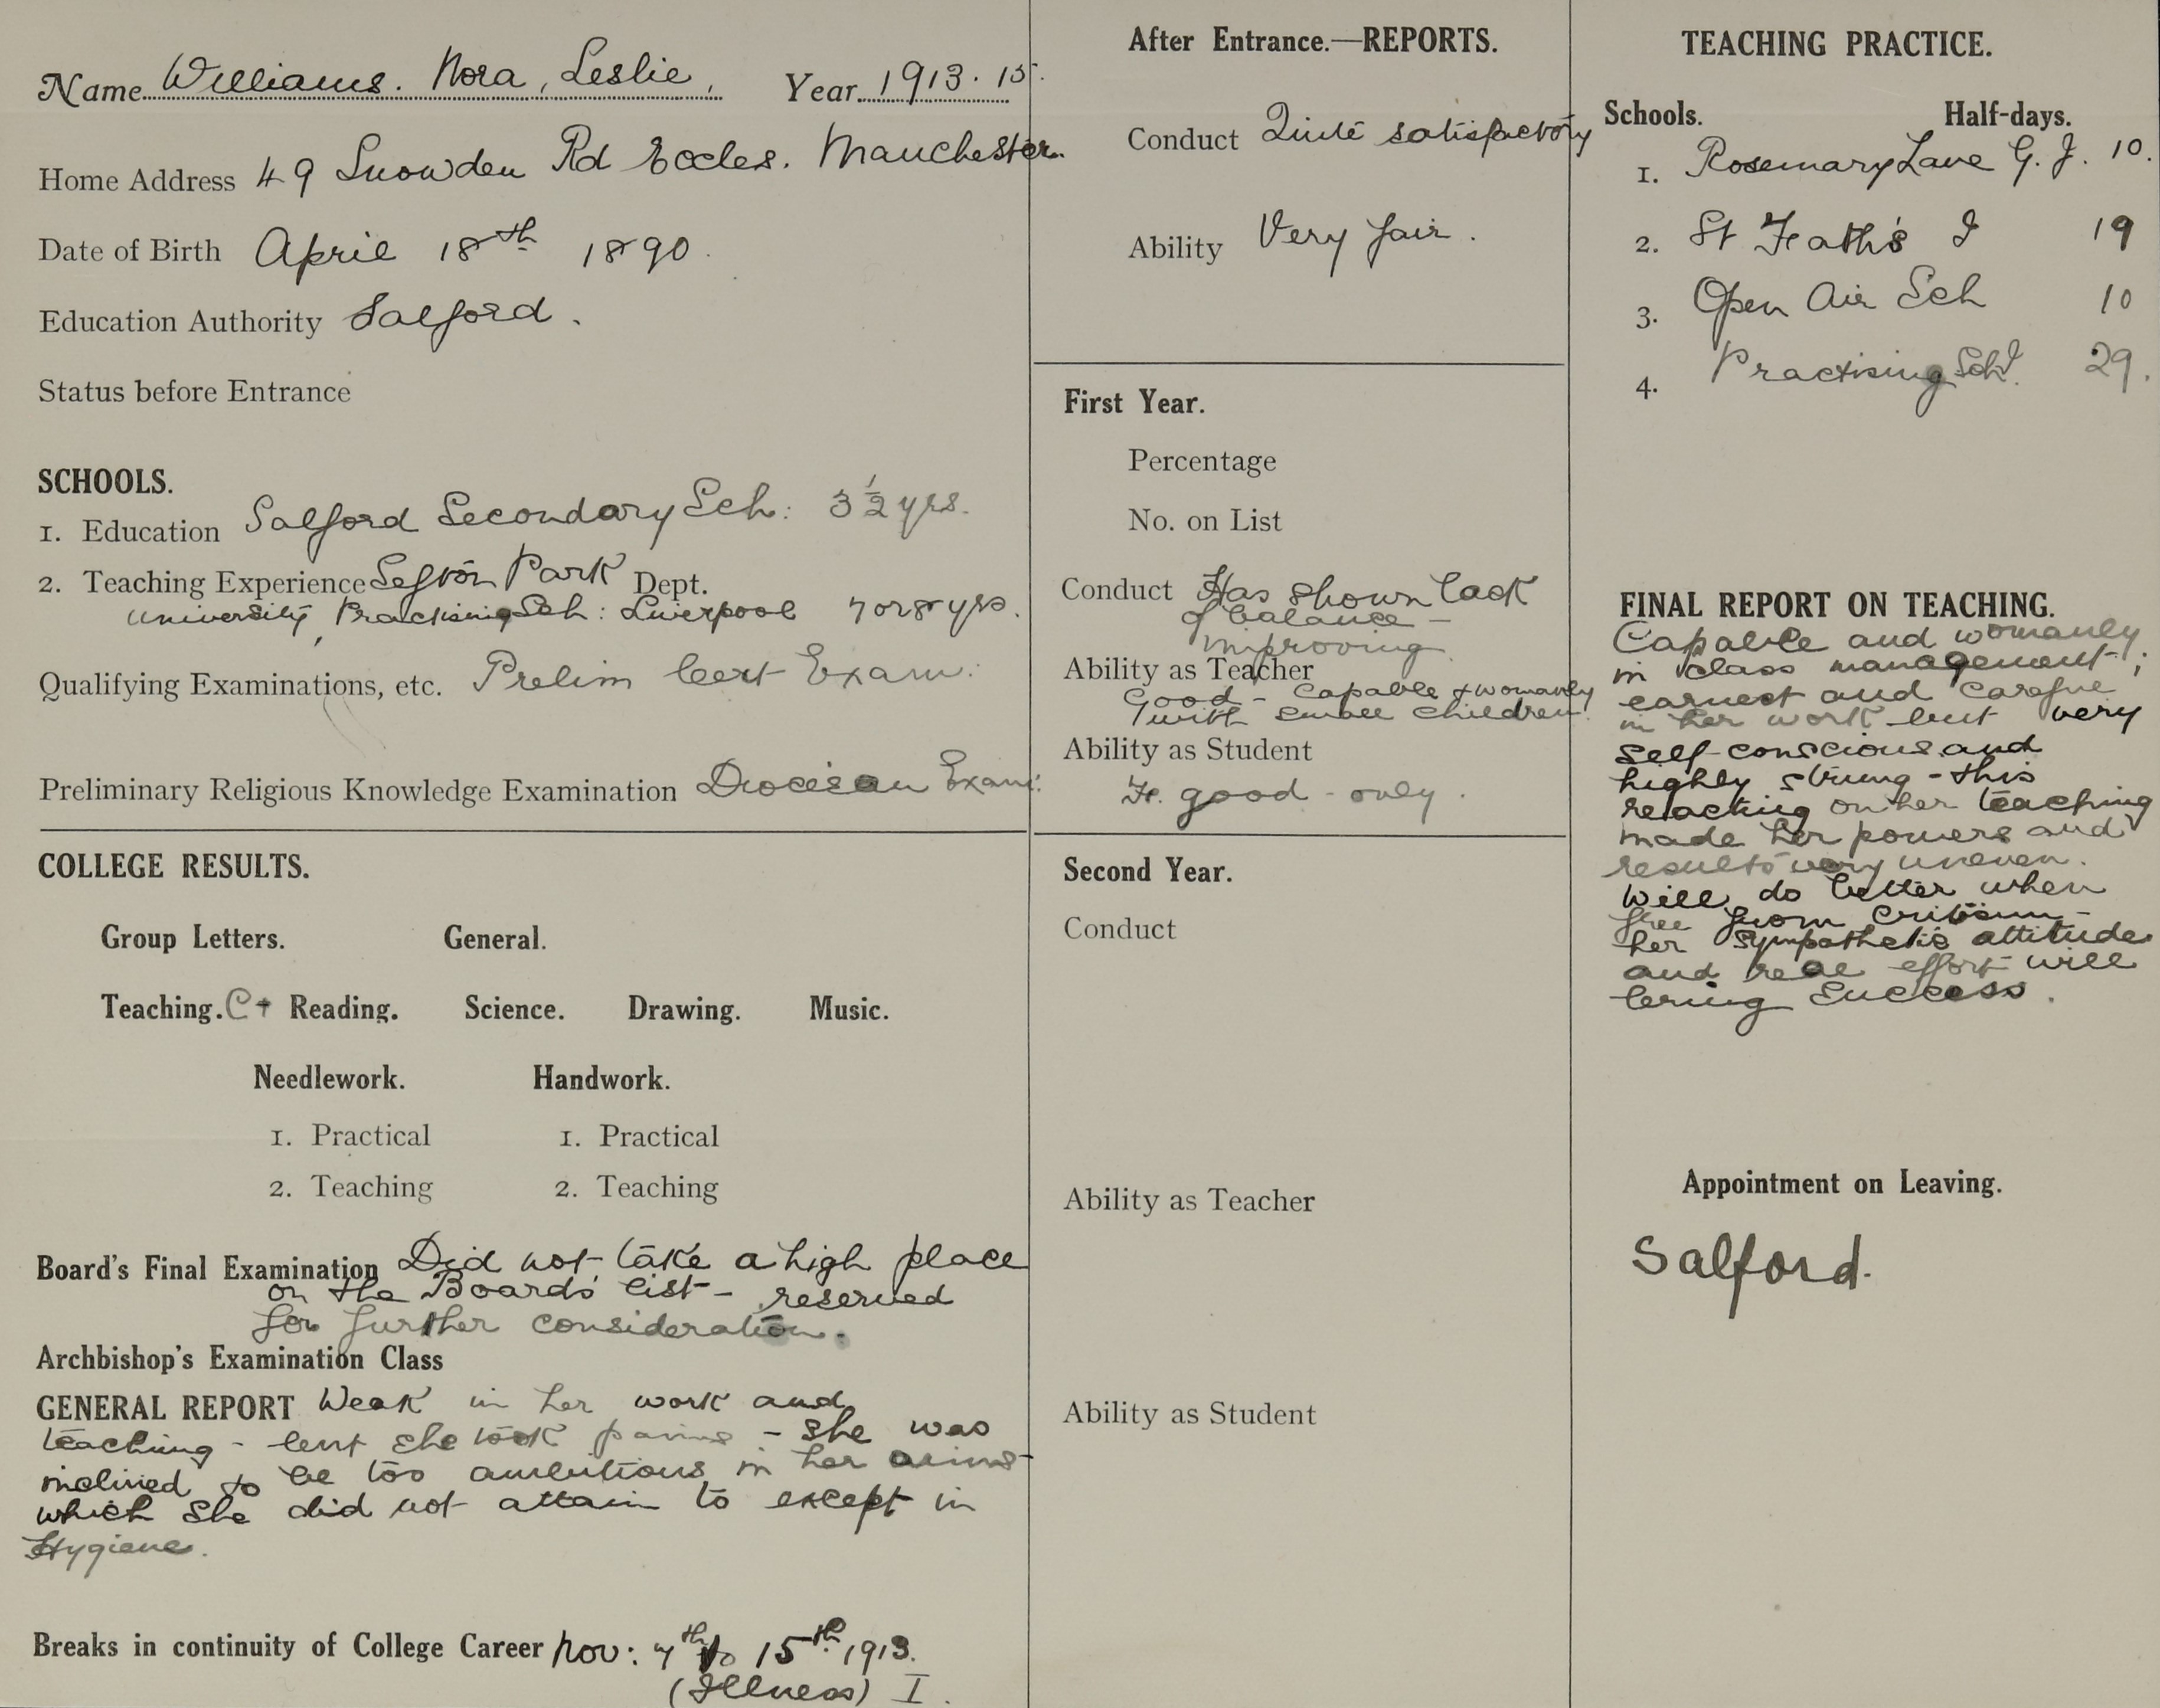 Name Williams. Nora, Leslie, Year 1913. 15.
Home Address 49 Snowden Rd Eccles. Manchester.
Date of Birth April 18th 1890.
Education Authority Salford.
Status before Entrance
SCHOOLS.
1. Education Salford Secondary Sch: 3½ yrs.
2. Teaching Experience Sefton Park Dept.
University Practising Sch: Liverpool 7 or 8 yrs.
Qualifying Examinations, etc. Prelim Cert Exam:
Preliminary Religious Knowledge Examination Diocesan Exam:
COLLEGE RESULTS.
Group Letters. General.
Teaching. C+ Reading. Science. Drawing. Music.
Needlework. Handwork.
1. Practical 1. Practical
2. Teaching 2. Teaching
Board's Final Examination Did not take a high place
on the Board's list - reserved
for further consideration.
Archbishop's Examination Class
GENERAL REPORT Weak in her work and
teaching - but she took pains - she was
inclined to be too ambitious in her aims -
which she did not attain to except in
Hygiene.
Breaks in continuity of College Career Nov: 7th to 15th 1913.
(Illness) I.
After Entrance.—REPORTS.
Conduct Quite satisfactory
Ability Very fair.
First Year.
Percentage
No. on List
Conduct Has shown lack
of balance -
improving.
Ability as Teacher
Good - Capable & womanly
with small children.
Ability as Student
Fr. good - only.
Second Year.
Conduct
Ability as Teacher
Ability as Student
TEACHING PRACTICE.
Schools. Half-days.
1. Rosemary Lane G. J. 10.
2. St Faith's I 19
3. Open Air Sch 10
4. Practising Sch I. 29.
FINAL REPORT ON TEACHING.
Capable and womanly
in class management;
earnest and careful
in her work but very
self-conscious and
highly strung - this
reacting on her teaching
made her powers and
results very uneven.
Will do better when
free from criticism -
her sympathetic attitude
and real effort will
bring success.
Appointment on Leaving.
Salford.